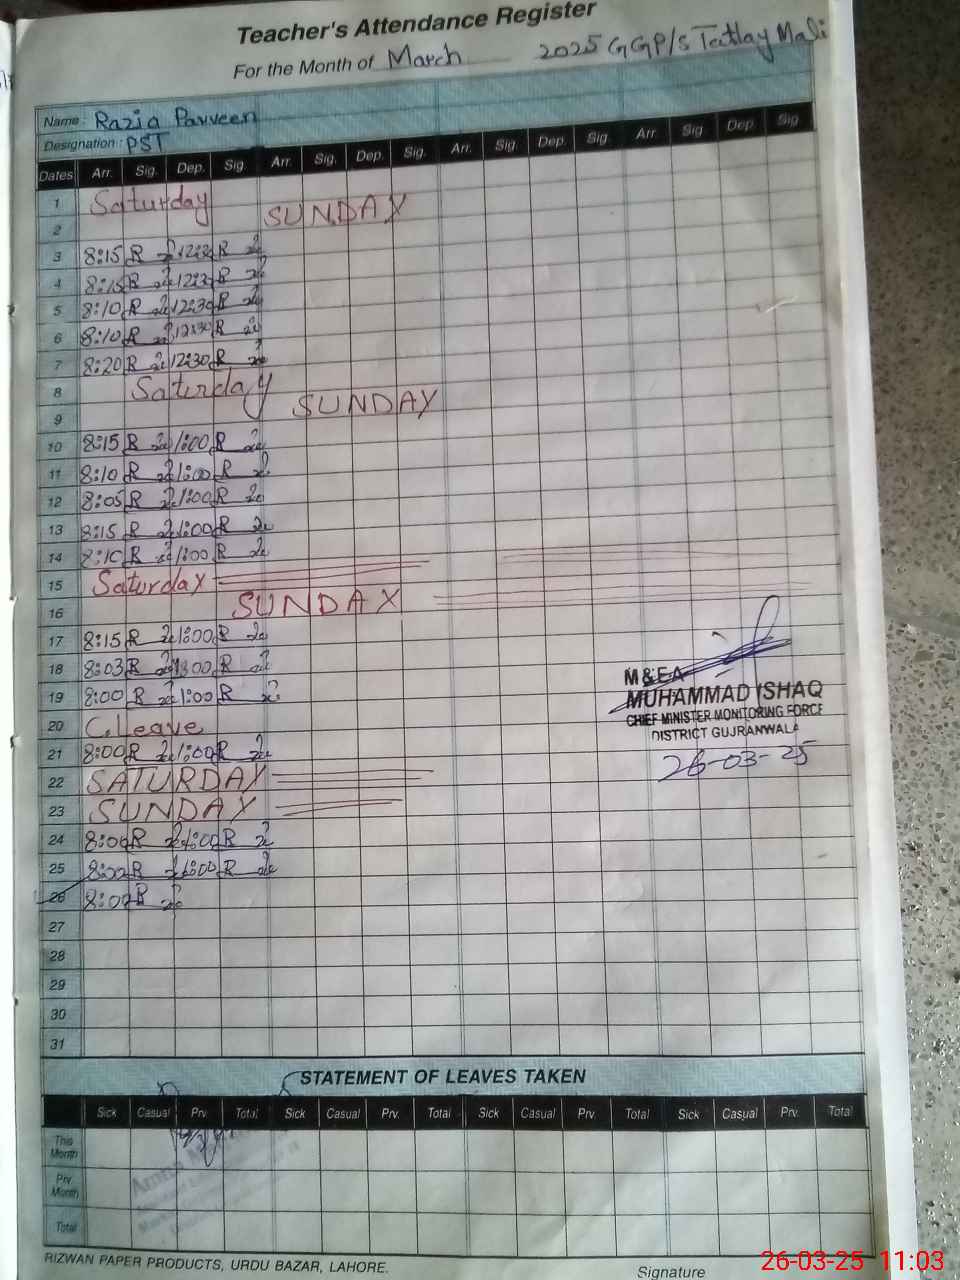 Teacher's Attendance Register
For the Month of March 2025 GGP/S Tatlay Mali
Name : Razia Parveen
Designation : PST
Dates Arr. Sig. Dep. Sig. Arr. Sig. Dep. Sig. Arr. Sig. Dep. Sig. Arr. Sig Dep. Sig
1 Saturday
2 SUNDAY
3 8:15 R 12:30 R
4 8:15 R 12:30 R
5 8:10 R 12:30 R
6 8:10 R 12:30 R
7 8:20 R 12:30 R
8 Saturday
9 SUNDAY
10 8:15 R 1:00 R
11 8:10 R 1:00 R
12 8:05 R 1:00 R
13 8:15 R 1:00 R
14 8:10 R 1:00 R
15 Saturday
16 SUNDAY
17 8:15 R 1:00 R
18 8:03 R 1:00 R
19 8:00 R 1:00 R
20 C.leave
21 8:00 R 1:00 R
22 SATURDAY
23 SUNDAY
24 8:00 R 1:00 R
25 8:00 R 1:00 R
26 8:00 R
27
28
29
30
31
M&EA
MUHAMMAD ISHAQ
CHIEF MINISTER MONITORING FORCE
DISTRICT GUJRANWALA
26-03-25
STATEMENT OF LEAVES TAKEN
Sick Casual Prv. Total Sick Casual Prv. Total Sick Casual Prv. Total Sick Casual Prv. Total
This Month
Prv. Month
Total
RIZWAN PAPER PRODUCTS, URDU BAZAR, LAHORE.
Signature
26-03-25 11:03